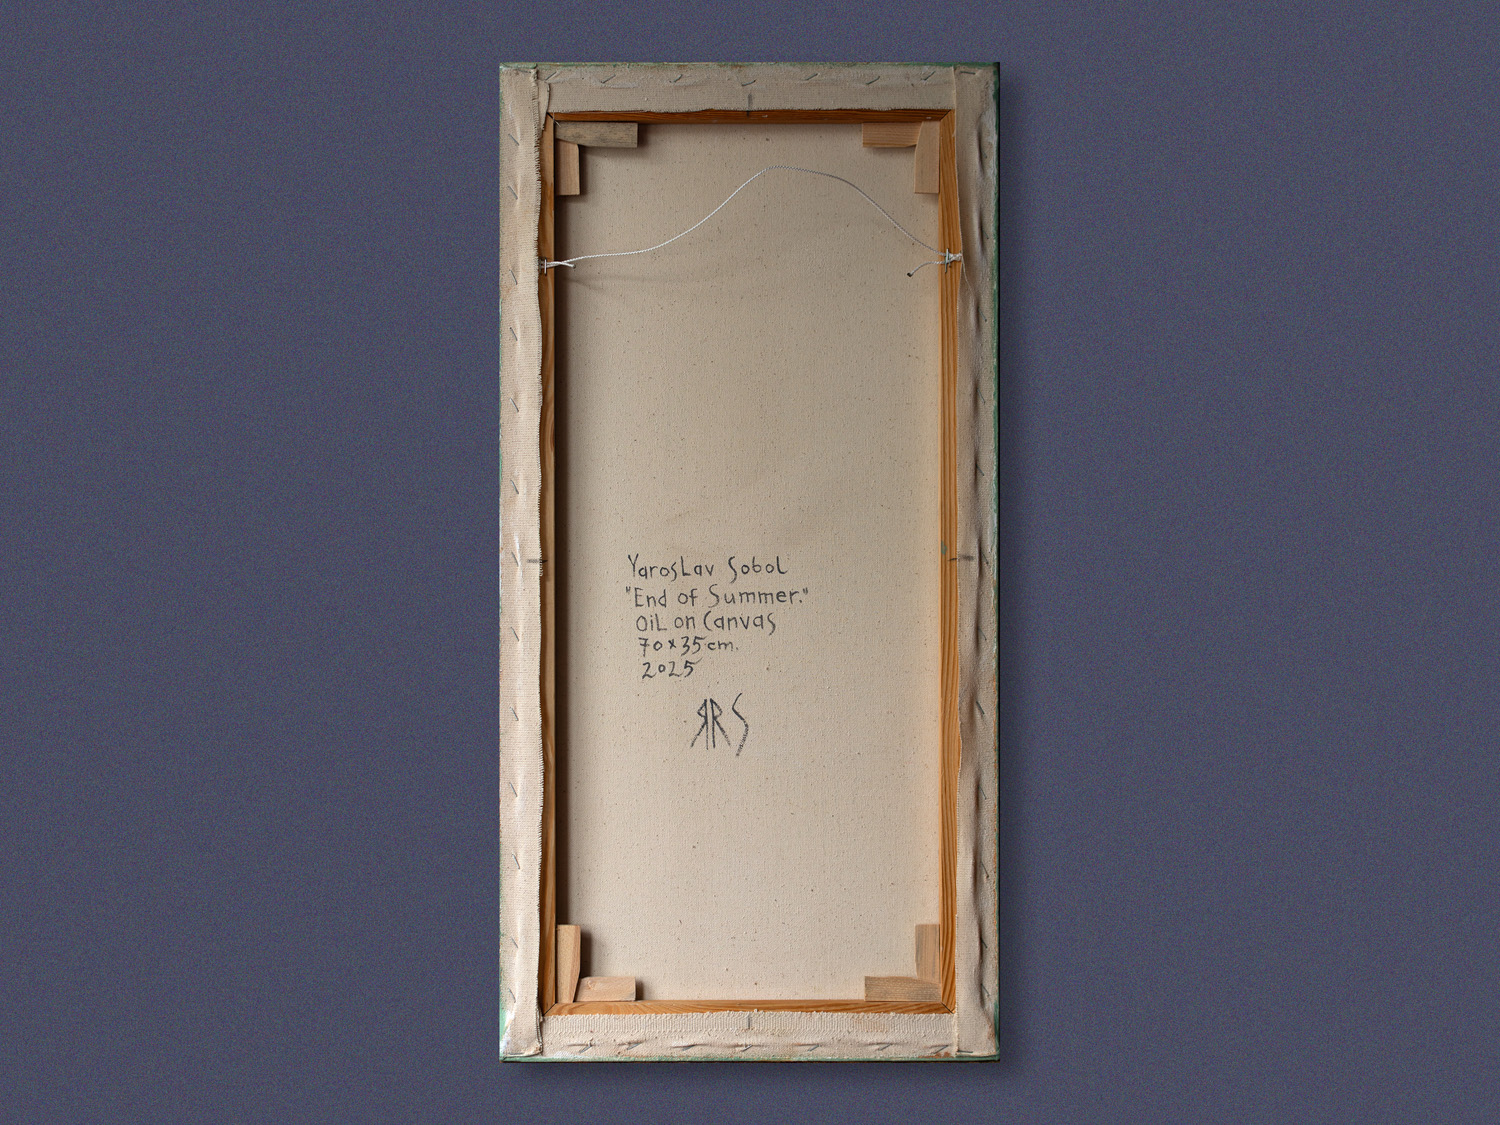 Yaroslav Sobol
"End of Summer."
Oil on Canvas
70x35cm.
2025
ЯRS